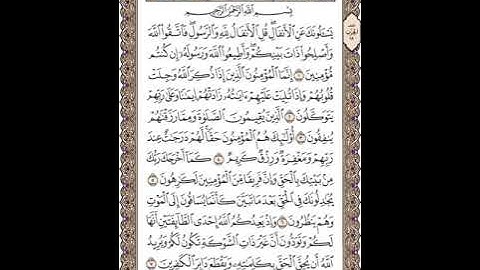 بِسْمِ اللَّهِ الرَّحْمَٰنِ الرَّحِيمِ
يَسْـَٔلُونَكَ عَنِ الْأَنفَالِ قُلِ الْأَنفَالُ لِلَّهِ وَالرَّسُولِ فَاتَّقُوا اللَّهَ
وَأَصْلِحُوا ذَاتَ بَيْنِكُمْ وَأَطِيعُوا اللَّهَ وَرَسُولَهُ إِن كُنتُم
مُّؤْمِنِينَ ١ إِنَّمَا الْمُؤْمِنُونَ الَّذِينَ إِذَا ذُكِرَ اللَّهُ وَجِلَتْ
قُلُوبُهُمْ وَإِذَا تُلِيَتْ عَلَيْهِمْ ءَايَٰتُهُ زَادَتْهُمْ إِيمَٰنًا وَعَلَىٰ رَبِّهِمْ
يَتَوَكَّلُونَ ٢ الَّذِينَ يُقِيمُونَ الصَّلَوٰةَ وَمِمَّا رَزَقْنَٰهُمْ
يُنفِقُونَ ٣ أُولَٰئِكَ هُمُ الْمُؤْمِنُونَ حَقًّا لَّهُمْ دَرَجَٰتٌ عِندَ
رَبِّهِمْ وَمَغْفِرَةٌ وَرِزْقٌ كَرِيمٌ ٤ كَمَا أَخْرَجَكَ رَبُّكَ
مِن بَيْتِكَ بِالْحَقِّ وَإِنَّ فَرِيقًا مِّنَ الْمُؤْمِنِينَ لَكَٰرِهُونَ ٥
يُجَٰدِلُونَكَ فِي الْحَقِّ بَعْدَ مَا تَبَيَّنَ كَأَنَّمَا يُسَاقُونَ إِلَى الْمَوْتِ
وَهُمْ يَنظُرُونَ ٦ وَإِذْ يَعِدُكُمُ اللَّهُ إِحْدَى الطَّائِفَتَيْنِ أَنَّهَا
لَكُمْ وَتَوَدُّونَ أَنَّ غَيْرَ ذَاتِ الشَّوْكَةِ تَكُونُ لَكُمْ وَيُرِيدُ
اللَّهُ أَن يُحِقَّ الْحَقَّ بِكَلِمَٰتِهِ وَيَقْطَعَ دَابِرَ الْكَٰفِرِينَ ٧